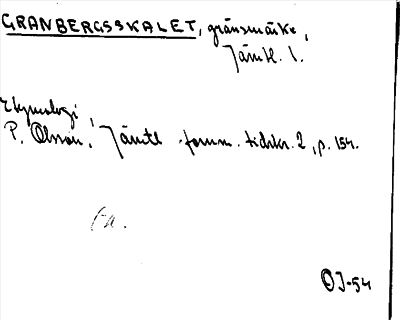 GRANBERGSSKALET, gränsmärke,
Jämtl. l.
Etymologi,
P. Olsson, Jämtl. fornm. tidskr. 2, p. 154.
OJ-54